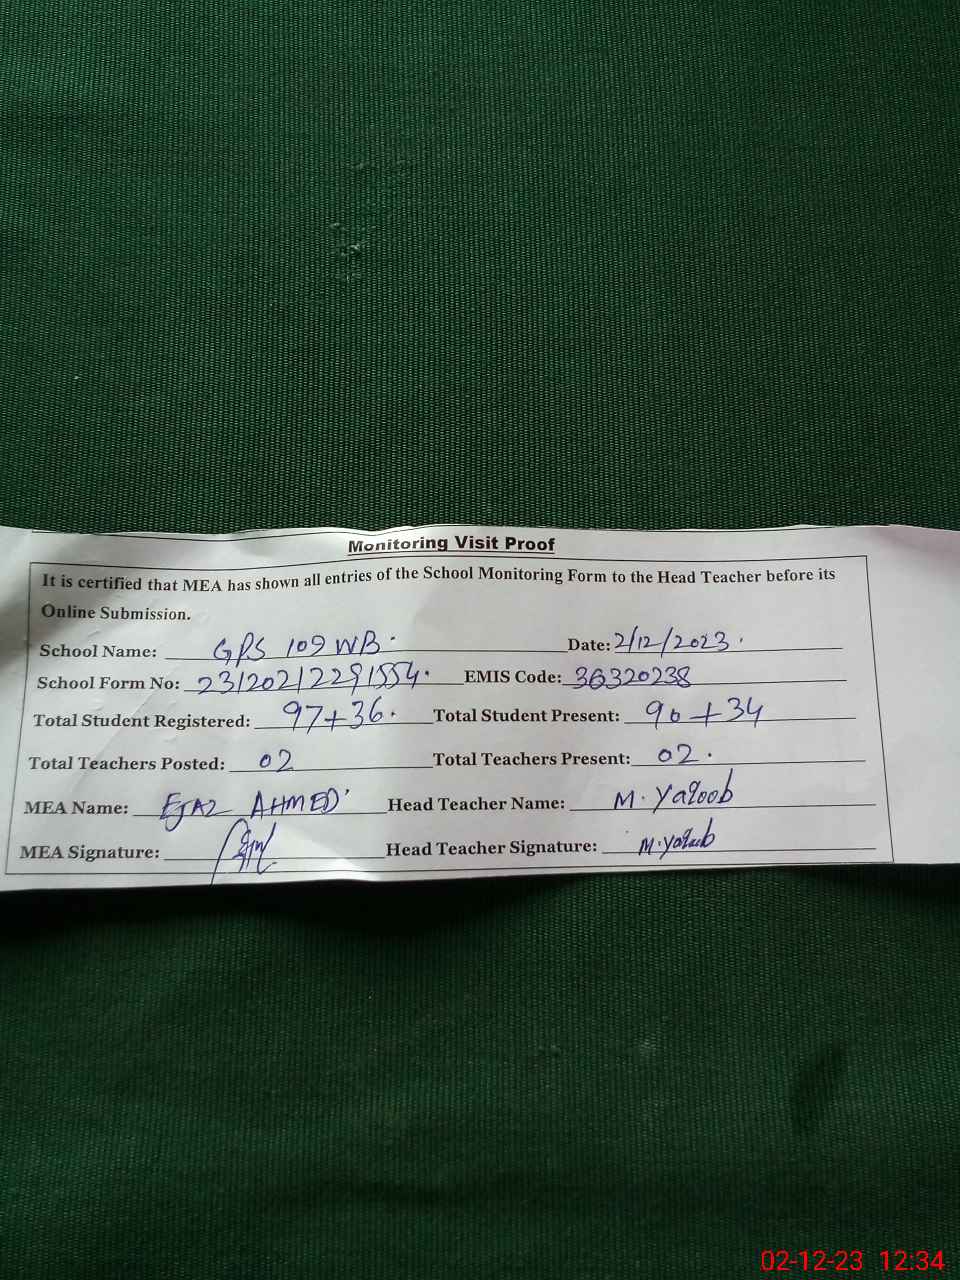 Monitoring Visit Proof
It is certified that MEA has shown all entries of the School Monitoring Form to the Head Teacher before its
Online Submission.
School Name: GPS 109 WB. Date: 2/12/2023.
School Form No: 231202122291554. EMIS Code: 36320238
Total Student Registered: 97+36. Total Student Present: 90+34
Total Teachers Posted: 02 Total Teachers Present: 02.
MEA Name: EJAZ AHMED Head Teacher Name: M. Yaqoob
MEA Signature: Head Teacher Signature: M. Yaqoob
02-12-23 12:34